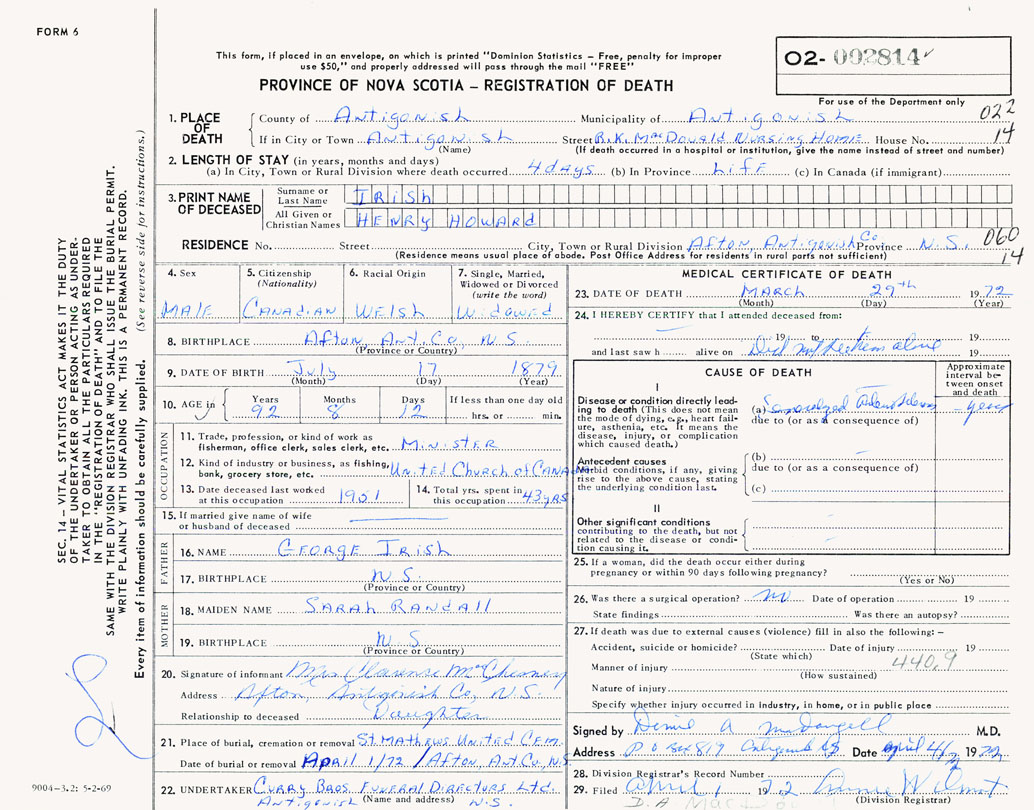 FORM 6
This form, if placed in an envelope, on which is printed "Dominion Statistics – Free, penalty for improper
use $50," and properly addressed will pass through the mail "FREE"
PROVINCE OF NOVA SCOTIA – REGISTRATION OF DEATH
O2- 002814
For use of the Department only
022
14
1. PLACE OF DEATH
County of Antigonish Municipality of Antigonish
If in City or Town Antigonish Street R.K. MacDonald Nursing Home House No.
(Name) (If death occurred in a hospital or institution, give the name instead of street and number)
2. LENGTH OF STAY (in years, months and days)
(a) In City, Town or Rural Division where death occurred 4 days (b) In Province Life (c) In Canada (if immigrant)
3. PRINT NAME OF DECEASED
Surname or Last Name IRish
All Given or Christian Names HENRY HOWARd
RESIDENCE No. Street City, Town or Rural Division Afton, Antigonish Co Province N.S.
(Residence means usual place of abode. Post Office Address for residents in rural parts not sufficient)
060
14
4. Sex MALE
5. Citizenship (Nationality) CANADIAN
6. Racial Origin WELSH
7. Single, Married, Widowed or Divorced (write the word) Widowed
8. BIRTHPLACE Afton, Ant. Co, N.S.
(Province or Country)
9. DATE OF BIRTH July 17 1879
(Month) (Day) (Year)
10. AGE in Years 92 Months 8 Days 12 If less than one day old hrs. or min.
OCCUPATION
11. Trade, profession, or kind of work as
fisherman, office clerk, sales clerk, etc. MINISTER
12. Kind of industry or business, as fishing,
bank, grocery store, etc. United Church of CANADA
13. Date deceased last worked at this occupation 1951
14. Total yrs. spent in this occupation 43 yRS
15. If married give name of wife
or husband of deceased
FATHER
16. NAME GEORGE IRish
17. BIRTHPLACE N.S.
(Province or Country)
MOTHER
18. MAIDEN NAME SARAH RANdAll
19. BIRTHPLACE N.S.
(Province or Country)
20. Signature of informant Mrs Clarence
Address Afton, Antigonish Co, N.S.
Relationship to deceased Daughter
21. Place of burial, cremation or removal St. Mathews United CEM.
Date of burial or removal April 1/72 / Afton, Ant. Co, N.S.
22. UNDERTAKER CURRY BROS. FUNERAL DIRECTORS Ltd.
Antigonish (Name and address) N.S.
MEDICAL CERTIFICATE OF DEATH
23. DATE OF DEATH MARCH 29th 1972
(Month) (Day)
24. I HEREBY CERTIFY that I attended deceased from:
19 to
and last saw h alive on Did not see him alive 19
CAUSE OF DEATH
Approximate interval between onset and death
I
Disease or condition directly leading to death (This does not mean the mode of dying, e.g., heart failure, asthenia, etc. It means the disease, injury, or complication which caused death.)
(a) - years
due to (or as a consequence of)
Antecedent causes
Morbid conditions, if any, giving rise to the above cause, stating the underlying condition last.
(b)
due to (or as a consequence of)
(c)
II
Other significant conditions
contributing to the death, but not related to the disease or condition causing it.
25. If a woman, did the death occur either during
pregnancy or within 90 days following pregnancy?
(Yes or No)
26. Was there a surgical operation? no Date of operation 19
State findings Was there an autopsy?
27. If death was due to external causes (violence) fill in also the following: –
Accident, suicide or homicide? Date of injury 19
(State which) 440.9
Manner of injury
(How sustained)
Nature of injury
Specify whether injury occurred in industry, in home, or in public place
Signed by M.D.
Address P O Box 819 Date April 4/72 1972
28. Division Registrar's Record Number
29. Filed April 1 1972
(Division Registrar)
SEC. 14 – VITAL STATISTICS ACT MAKES IT THE DUTY
OF THE UNDERTAKER OR PERSON ACTING AS UNDER-
TAKER TO OBTAIN ALL THE PARTICULARS REQUIRED
IN THE "REGISTRATION OF DEATH" AND TO FILE THE
SAME WITH THE DIVISION REGISTRAR WHO SHALL ISSUE THE BURIAL PERMIT.
WRITE PLAINLY WITH UNFADING INK. THIS IS A PERMANENT RECORD.
Every item of information should be carefully supplied. (See reverse side for instructions.)
9004-3.2: 5-2-69